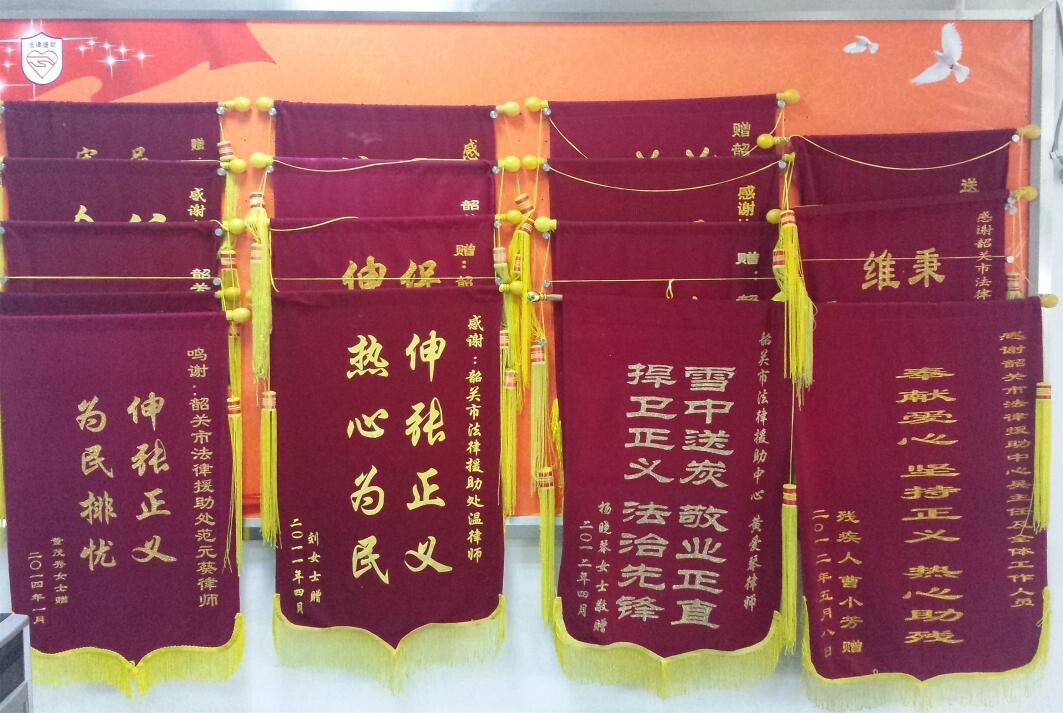 法律援助
赠
感谢
韶关
鸣谢：韶关市法律援助处范元葵律师
伸张正义
为民排忧
黄茂秀女士赠
二〇一四年一月
感
韶
赠：韶
保
伸
感谢：韶关市法律援助处温律师
伸张正义
热心为民
刘女士赠
二〇一一年四月
赠韶
感谢
赠：韶
韶关市法律援助中心 黄爱琴律师
雪中送炭 敬业正直
捍卫正义 法治先锋
杨晚琴女士敬赠
二〇一二年四月
送
感谢韶关市法律
秉
维
感谢韶关市法律援助中心吴主任及全体工作人员
奉献爱心 坚持正义 热心助残
残疾人曹小芳赠
二〇一二年五月八日